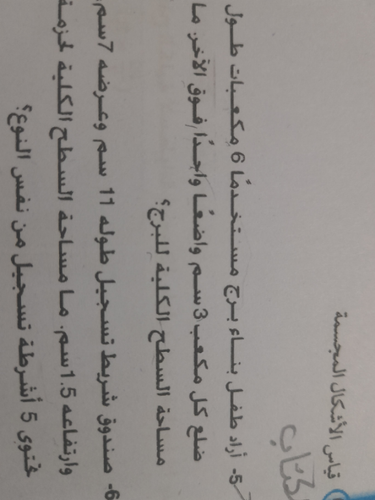 قياس الأشكال المجسمة
كتاب
5- أراد طفل بناء برج مستخدمًا 6 مكعبات طول
ضلع كل مكعب 3سم واضعًا واحدًا فوق الآخر. ما
مساحة السطح الكلية للبرج؟
6- صندوق شريط تسجيل طوله 11 سم وعرضه 7سم،
وارتفاعه 1.5سم. ما مساحة السطح الكلية لحزمة
تحتوى 5 أشرطة تسجيل من نفس النوع؟